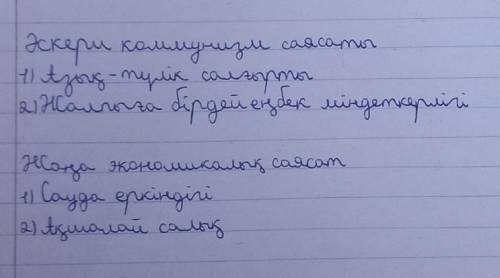 Әскери коммунизм саясаты
1) Азық-түлік салғырты
2) Жалпыға бірдей еңбек міндеткерлігі
Жаңа экономикалық саясат
1) Сауда еркіндігі
2) Ақшалай салық